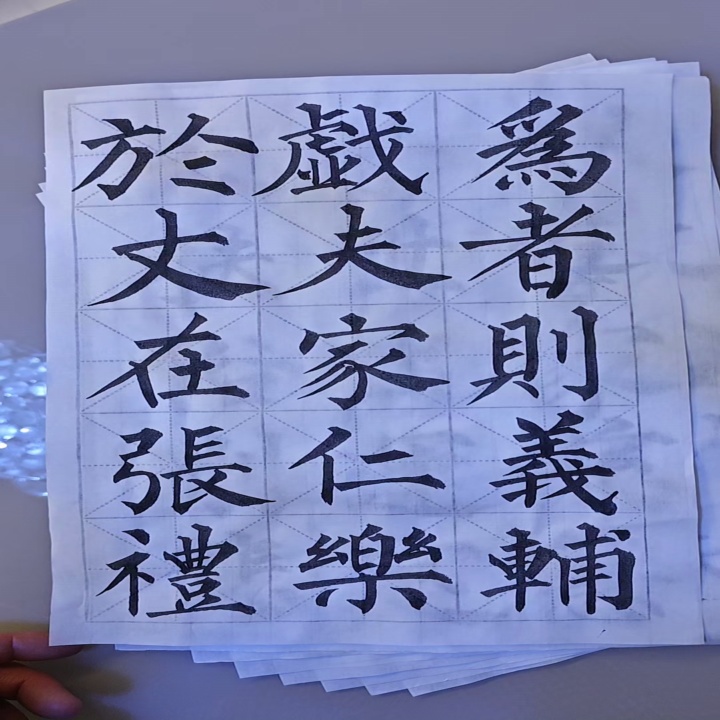 為者則義輔
戯夫家仁樂
於丈在張禮